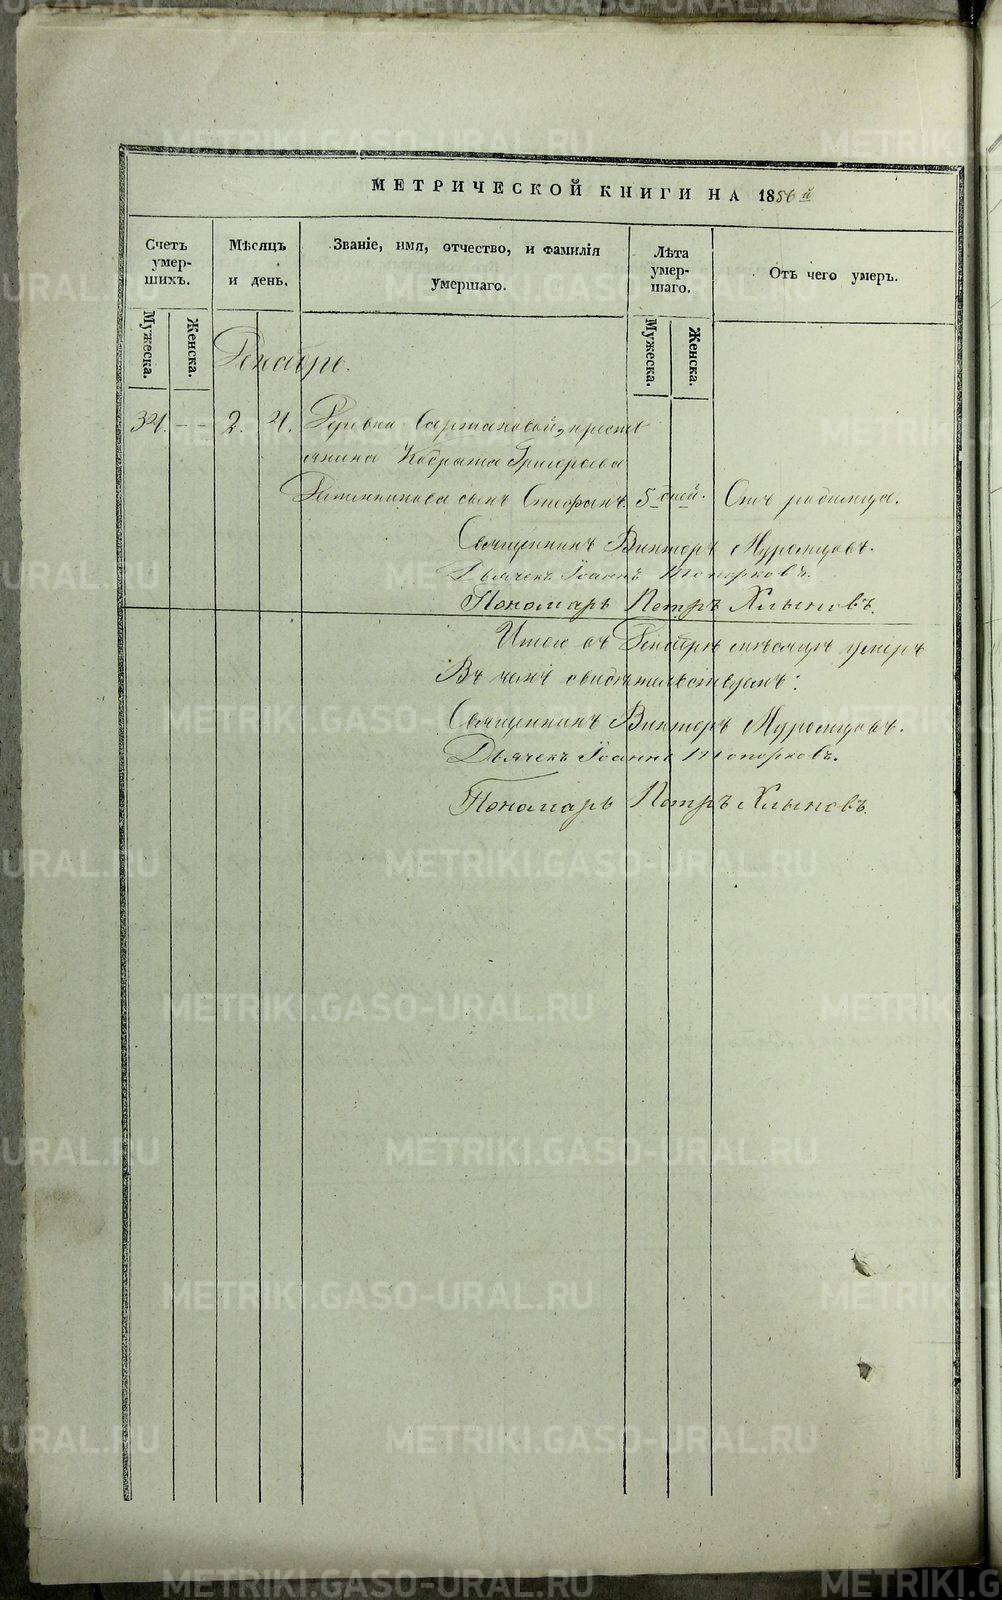 МЕТРИЧЕСКОЙ КНИГИ НА 1856й
Счетъ умер-шихъ.
Мѣсяцъ и день.
Званіе, имя, отчество, и фамилія умершаго.
Лѣта умер-шаго.
Отъ чего умеръ.
Мужеска.
Женска.
Мужеска.
Женска.
Декабрь.
34. - - 2. 4. Деревни кресть
янина Григорьева
сынъ Стефанъ. 5 дней. Отъ родимца.
Священникъ Викторъ Муромцовъ.
Дьячекъ Іоаннъ Топорковъ.
Пономарь Петръ Хлыновъ.
Итого въ Декабрѣ мѣсяцѣ умеръ
Въ чемъ свидѣтельствуемъ:
Священникъ Викторъ Муромцовъ.
Дьячекъ Іоаннъ Топорковъ.
Пономарь Петръ Хлыновъ.
METRIKI.GASO-URAL.RU